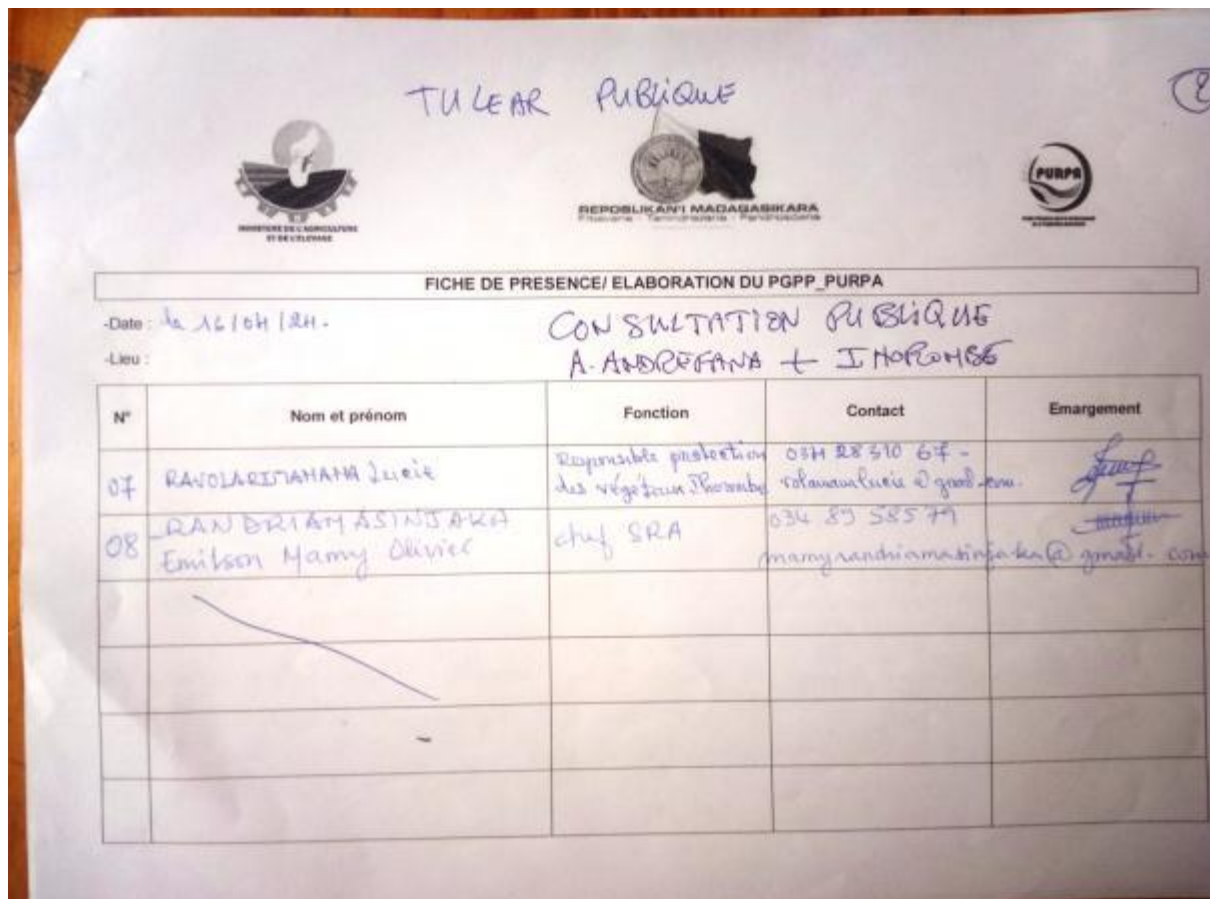 TULEAR PUBLIQUE
MINISTERE DE L'AGRICULTURE
ET DE L'ELEVAGE
REPOBLIKAN'I MADAGASIKARA
Fitiavana - Tanindrazana - Fandrosoana
PURPA
FICHE DE PRESENCE/ ELABORATION DU PGPP_PURPA
-Date : le 16/04/24.
CONSULTATION PUBLIQUE
-Lieu :
A. ANDREFANA + IHOROMBE
N° Nom et prénom Fonction Contact Emargement
07 Lucie Responsable protection des végétaux Ihorombe 034 28 310 67 -
08 RANDRIAMASINJAKA
Emilson Mamy Olivier chef SRA 034 89 58579
mamyrandriamasinjaka@gmail.com